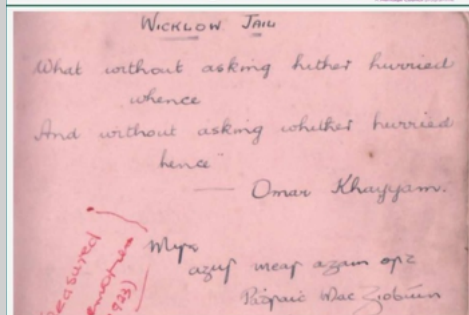 WICKLOW JAIL
What without asking hither hurried
whence
And without asking whither hurried
hence"
— Omar Khayyam.
Mise
agus meas agam ort
Pádraic Mac
easured
1923)